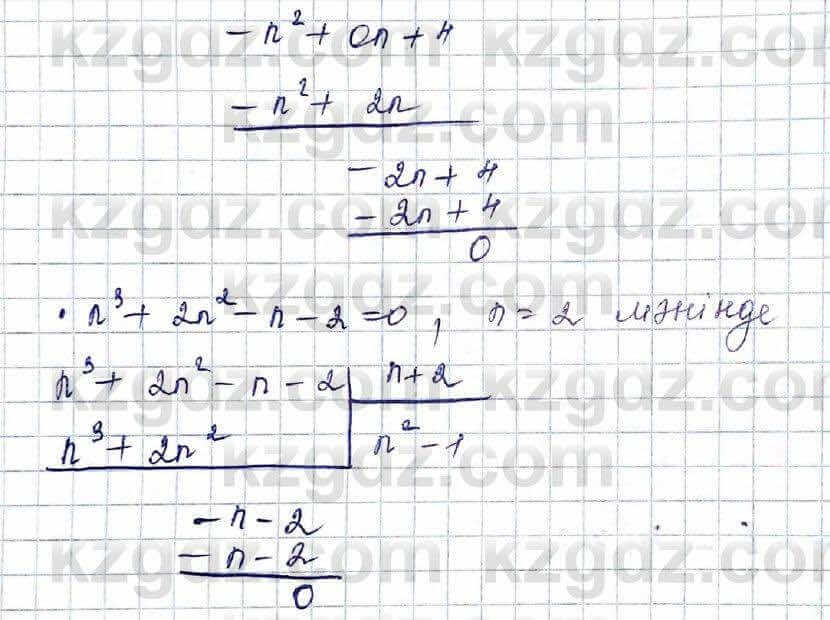 - n² + 0n + 4
- n² + 2n
- 2n + 4
- 2n + 4
0
· n³ + 2n² - n - 2 = 0, n = 2 мәнінде
n³ + 2n² - n - 2 | n + 2
n³ + 2n² | n² - 1
- n - 2
- n - 2
0
kzgdz.com